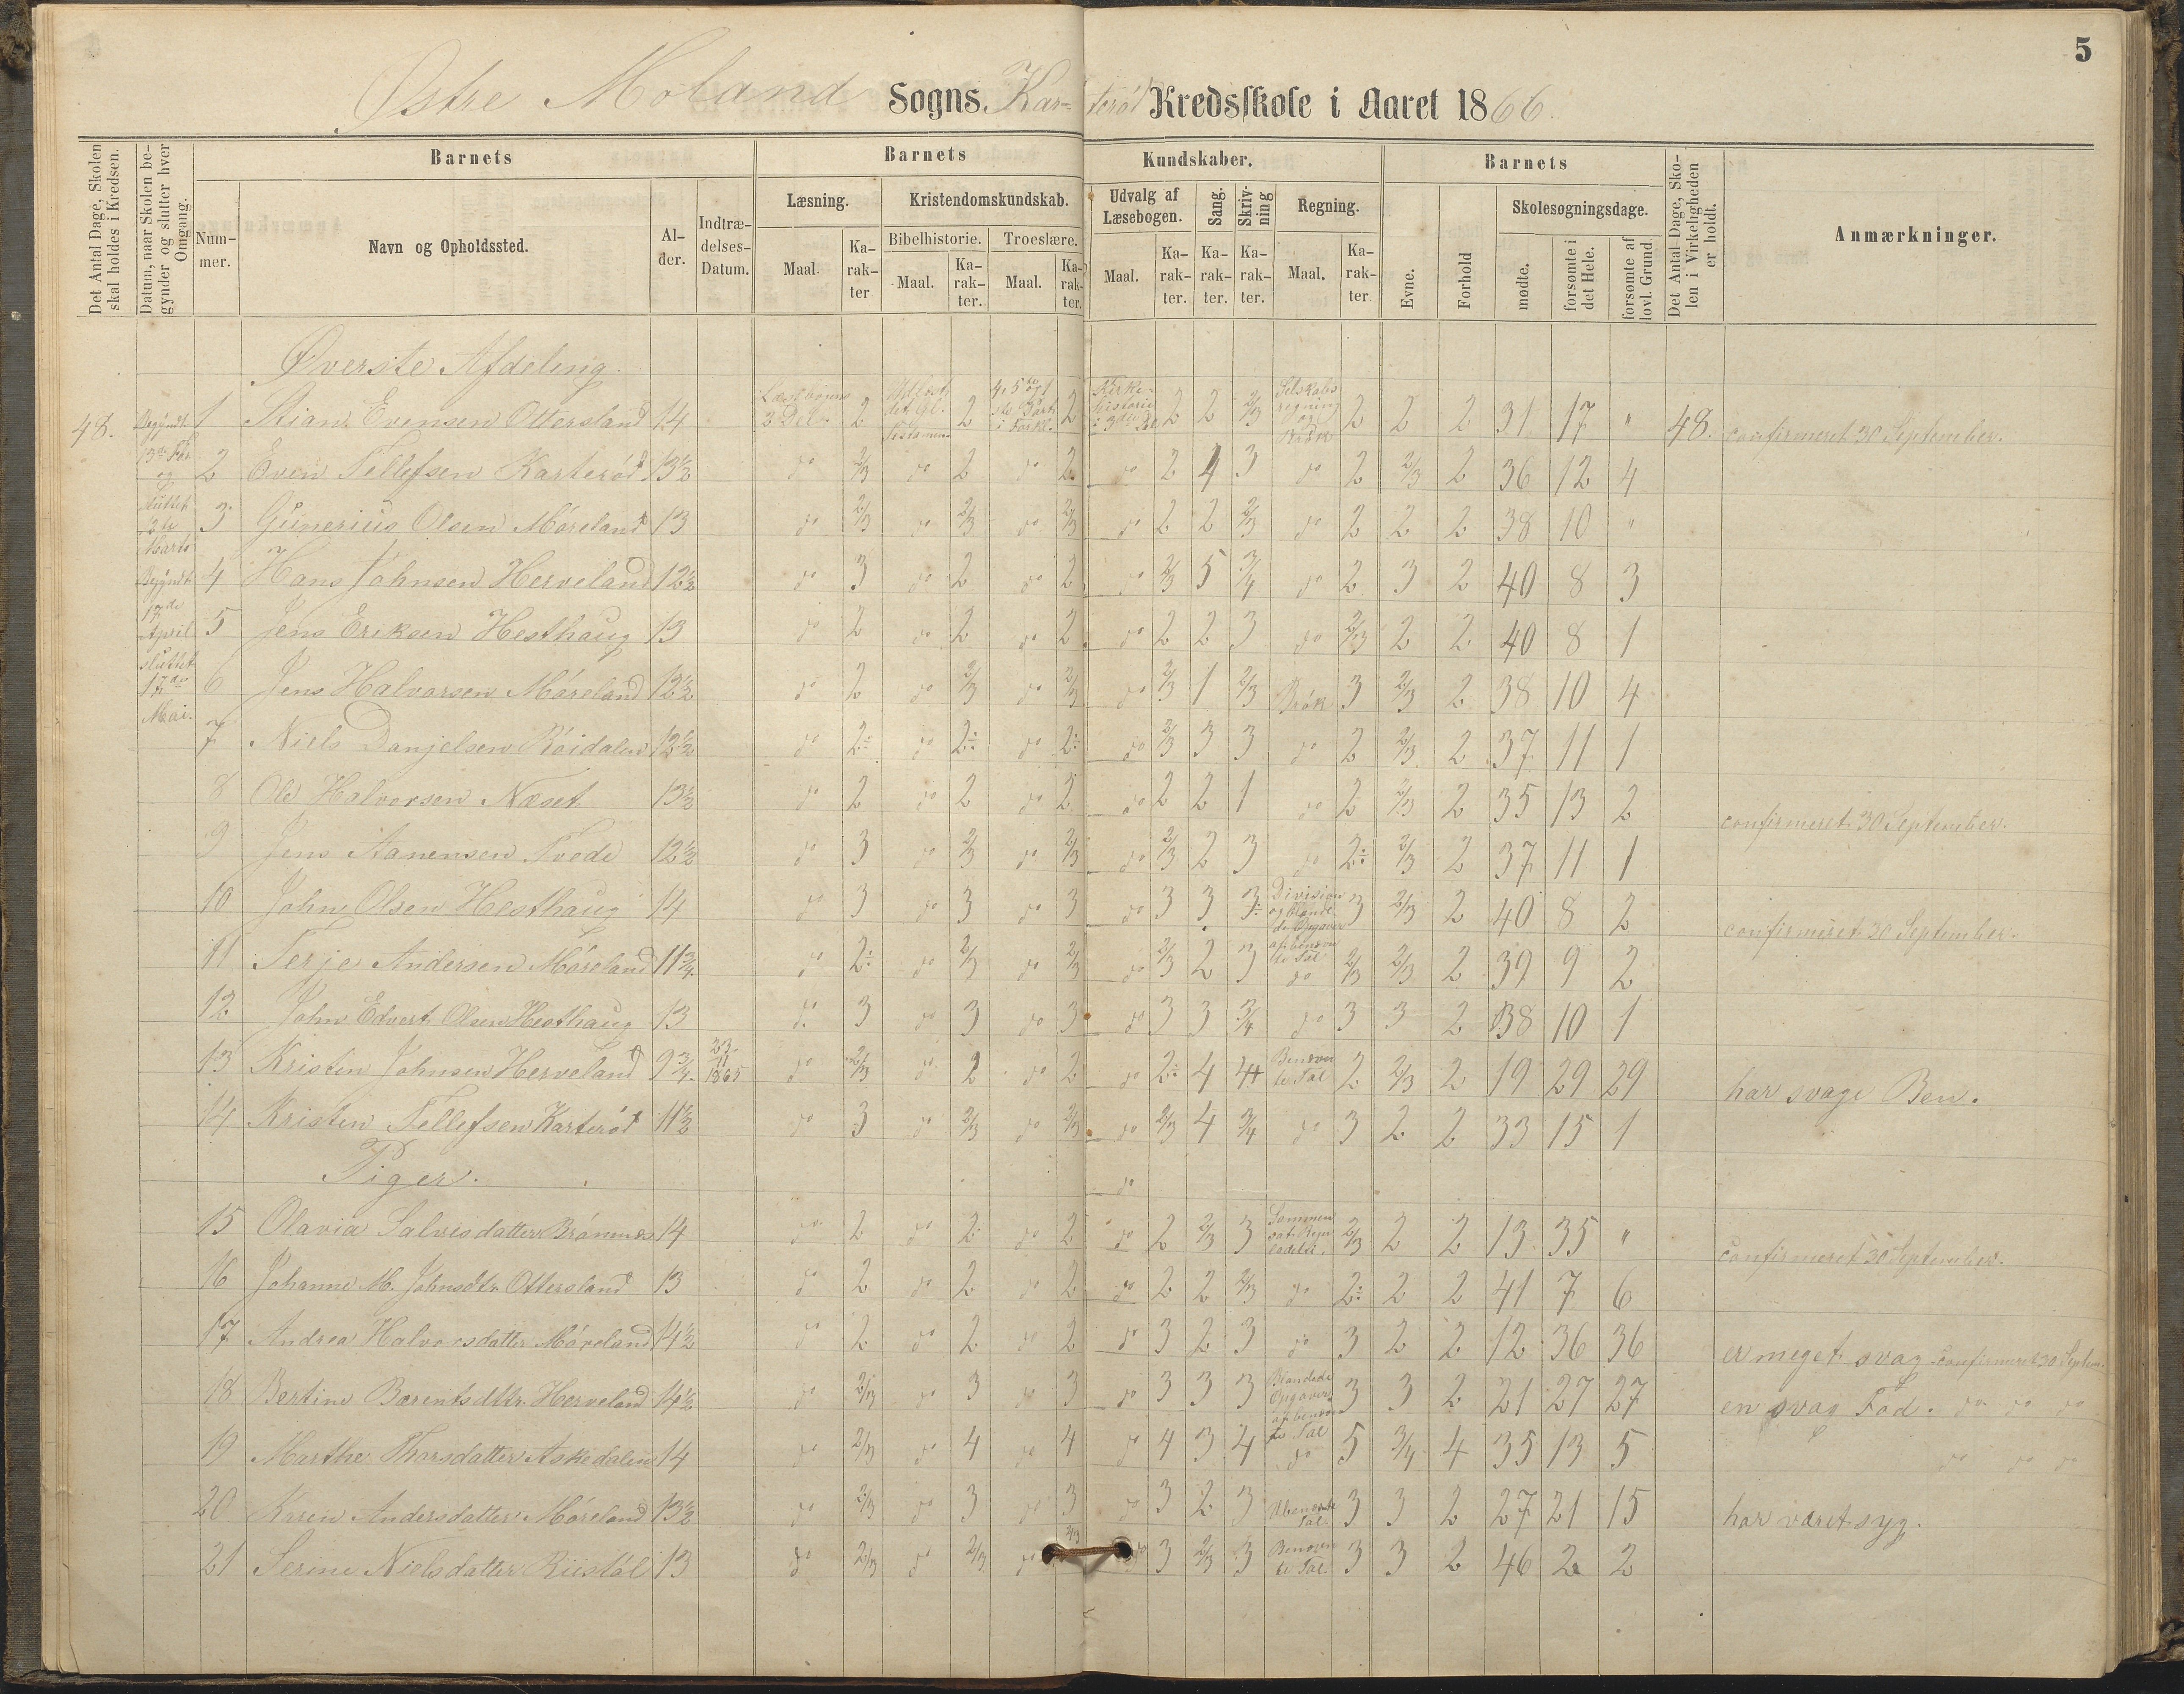 5
Østre Moland Sogns Kar= terød Kredsskole i Aaret 1866.
Det Antal Dage, Skolen skal holdes i Kredsen.
Datum, naar Skolen begynder og slutter hver Omgang.
Barnets
Num-mer.
Navn og Opholdssted.
Al-der.
Indtræ-delses-Datum.
Barnets Kundskaber.
Læsning.
Maal.
Ka-rak-ter
Kristendomskundskab.
Bibelhistorie.
Maal.
Ka-rak-ter.
Troeslære.
Maal.
Ka-rak-ter.
Udvalg af Læsebogen.
Maal.
Ka-rak-ter.
Sang.
Ka-rak-ter.
Skriv-ning
Ka-rak-ter.
Regning.
Maal.
Ka-rak-ter.
Barnets
Evne.
Forhold
Skolesøgningsdage.
mødte.
forsømte i det Hele.
forsømte af lovl. Grund.
Det Antal Dage, Sko-len i Virkeligheden er holdt.
Anmærkninger.
Øverste Afdeling.
48.
Begyndt 13de Feb og sluttet 3de Marts
Begyndt 17de April sluttet 17de Mai.
1 Stian Evensen Ottersland 14 Læsebogens 3 Del 2 2 2 Kirkehistorie i 3die Del 2 2 2/3 Selskabsregning og Brøk 2 2 2 31 17 " 48. confirmeret 30 September.
2 Even Tellefsen Karterød 13½ do 2/3 do 2 do 2 do 2 4 3 do 2 2/3 2 36 12 4
3 Gunerius Olsen Møreland 13 do 2/3 do 2/3 do 2/3 do 2 2 2/3 do 2 2 2 38 10 "
4 Hans Johnsen Herveland 12½ do 3 do 2 do 2 do 2/3 5 3/4 do 2 3 2 40 8 3
5 Jens Eriksen Hesthaug 13 do 2 do 2 do 2 do 2 2 3 do 2/3 2 2 40 8 1
6 Jens Halvorsen Møreland 12½ do 2 do 2/3 do 2/3 do 2/3 1 2/3 Brøk 3 2/3 2 38 10 4
7 Niels Danjelsen Røidalen 12½ do 2÷ do 2÷ do 2÷ do 2/3 3 3 do 2 2/3 2 37 11 1
8 Ole Halvorsen Næset 13½ do 2 do 2 do 2 do 2 2 1 do 2 2/3 2 35 13 2 confirmeret 30 September.
9 Jens Aanensen Tvede 12½ do 3 do 2/3 do 2/3 do 2/3 2 3 do 2÷ 2/3 2 37 11 1
10 John Olsen Hesthaug 14 do 3 do 3 do 3 do 3 3 3÷ Division og blande-de Opgaver af benævn-te Tal 3 2/3 2 40 8 2 confirmeret 30 September.
11 Terje Andersen Møreland 11¾ do 2÷ do 2/3 do 2/3 do 2/3 2 3 do 2/3 2/3 2 39 9 2
12 John Edvert Olsen Hesthaug 13 do 3 do 3 do 3 do 3 3 3/4 do 3 3 2 38 10 1
13 Kristen Johnsen Herveland 9¾ 23-11 1865 do 2/3 do 2 do 2 do 2÷ 4 4+ Benævn-te Tal 2 2/3 2 19 29 29 har svage Ben.
14 Kristen Tellefsen Karterød 11½ do 3 do 2/3 do 2/3 do 2/3 4 3/4 do 3 2 2 33 15 1
Piger.
do
15 Olavia Salvesdatter 14 do 2 do 2 do 2 do 2 2/3 3 Sammen-sat 2/3 2 2 13 35 " confirmeret 30 September.
16 Johanne M. Johnsdtr. Ottersland 13 do 2 do 2 do 2 do 2 2 2/3 do 2÷ 2 2 41 7 6
17 Andrea Halvorsdatter Møreland 14½ do 2 do 2 do 2 do 3 2 3 do 3 2 2 12 36 36 er meget svag. confirmeret 30 Septem.
18 Bertine Berentsdttr. Herveland 14½ do 2/3 do 3 do 3 do 3 3 3 Blandede Opgaver af benævn-te Tal 3 3 2 21 27 27 en svag Fod. do do do
19 Marthe Thorsdatter Askedalen 14 do 2/3 do 4 do 4 do 4 3 4 do 5 3/4 4 35 13 5 do do do
20 Karen Andersdatter Møreland 13½ do 2/3 do 3 do 3 do 3 2 3 Ubenævnte Tal. 3 3 2 27 21 15 har været syg.
21 Serine Nielsdatter 13 do 2/3 do 2/3 do 2/3 do 3 2/3 3 Benævn-te Tal. 3 3 2 46 2 2